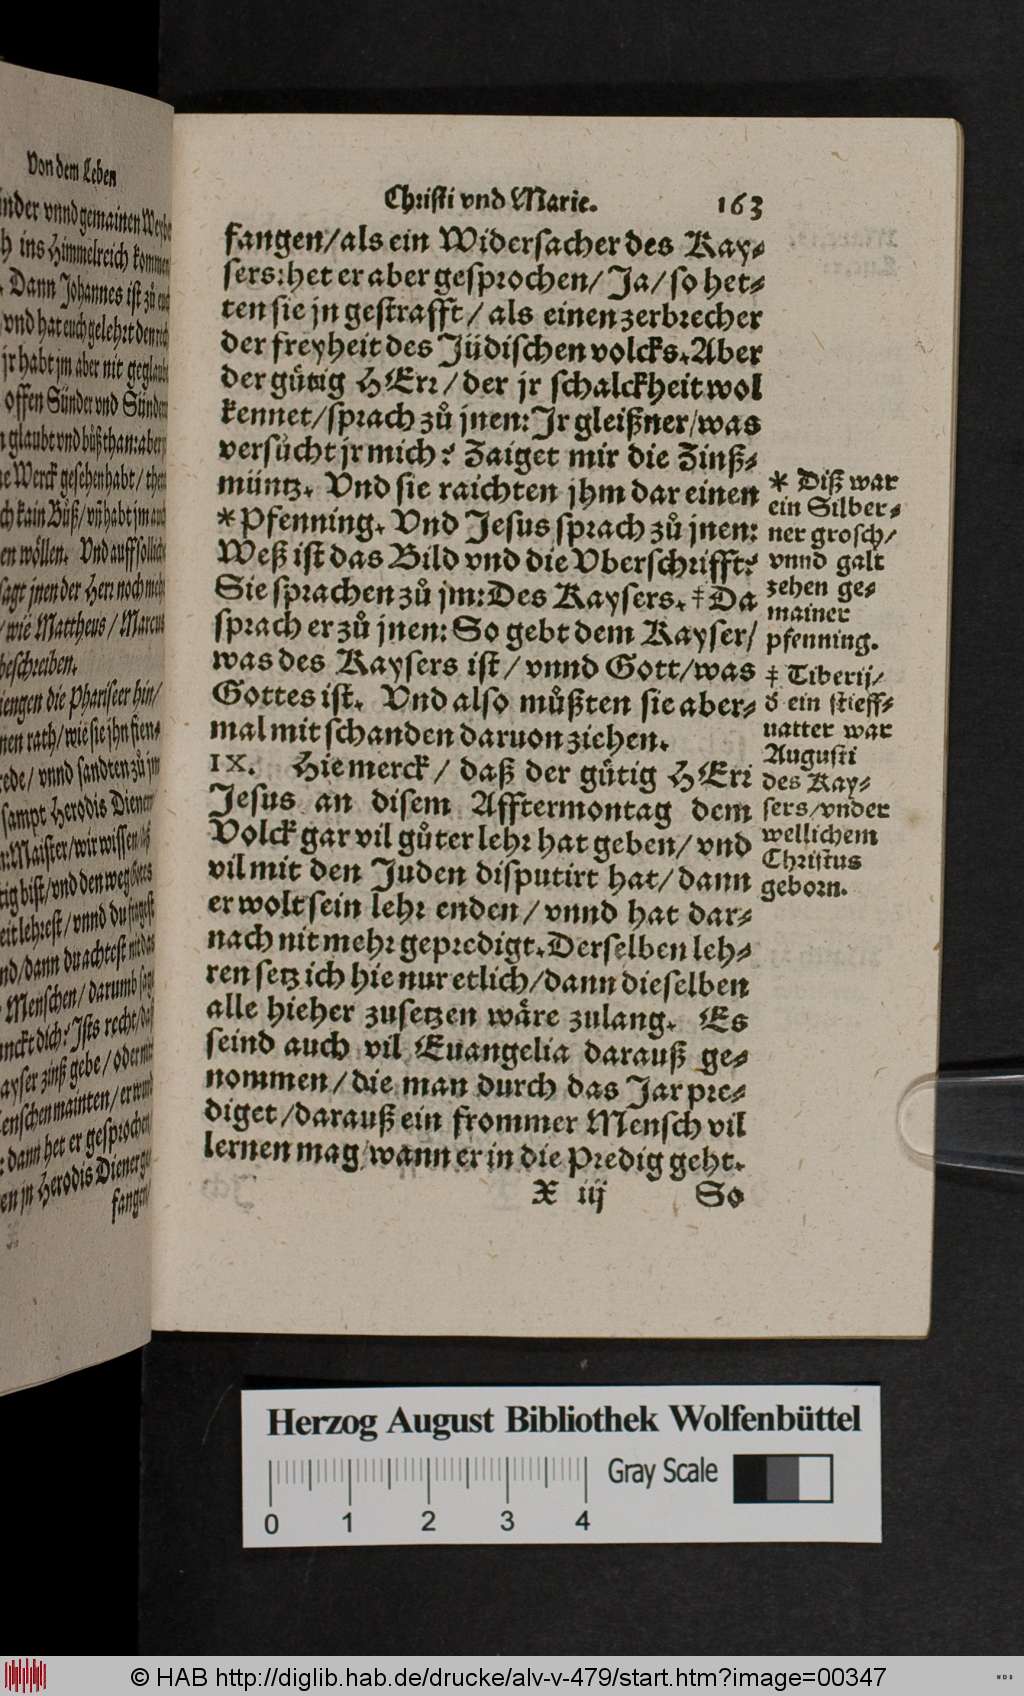 Von dem Leben
inder vnnd gemainen Weybe
h ins Himmelreich kommen
. Dann Johannes ist zů euch
vnd hat euch gelehrt den
jr habt jm aber nit geglaubt
offen Sünder vnd Sünderin
glaubt vnd bůß than: aber
Werck gesehen habt / thet
kain Bůß / vñ habt jm auch
en wöllen. Vnd auff solliche
sagt jnen der Herr noch mehr
/ wie Mattheus / Marcus
beschreiben.
iengen die Phariseer hin /
nen rath / wie sie jhn fien-
rede / vnnd sandten zů jm
sampt Herodis Diener
n: Maister / wir wissen
tig bist / vnd den weg Gottes
eit lehrest / vnnd du fragest
nd / dann du achtest nit das
Menschen / darumb sage
unckt dich: Ists recht / daß
ayser zinß gebe / oder nit
enschen mainten / er wurd
: dann het er gesprochen
en jn Herodis Diener ge
fangen/
Christi vnd Marie. 163
fangen/als ein Widersacher des Kay-
sers: het er aber gesprochen/ Ja/ so het-
ten sie jn gestrafft / als einen zerbrecher
der freyheit des Jüdischen volcks. Aber
der gůtig HErr / der jr schalckheit wol
kennet/sprach zů jnen: Jr gleißner/was
versůcht jr mich? Zaiget mir die Zinß-
müntz. Vnd sie raichten jhm dar einen
*Pfenning. Vnd Jesus sprach zů jnen:
Weß ist das Bild vnd die Vberschrifft?
Sie sprachen zů jm: Des Kaysers. ‡ Da
sprach er zů jnen: So gebt dem Kayser/
was des Kaysers ist / vnnd Gott/was
Gottes ist. Vnd also můßten sie aber-
mal mit schanden daruon ziehen.
IX. Hie merck / daß der gůtig HErr
Jesus an disem Afftermontag dem
Volck gar vil gůter lehr hat geben/ vnd
vil mit den Juden disputirt hat/ dann
er wolt sein lehr enden / vnnd hat dar-
nach nit mehr gepredigt. Derselben leh-
ren setz ich hie nur etlich/dann dieselben
alle hieher zusetzen wäre zulang. Es
seind auch vil Euangelia darauß ge-
nommen / die man durch das Jar pre-
diget /darauß ein frommer Mensch vil
lernen mag/ wann er in die Predig geht.
X iij So
* Diß war
ein Silber-
ner grosch/
vnnd galt
zehen ge-
mainer
pfenning.
‡ Tiberij/
ein stieff-
uatter war
Augusti
des Kay-
sers/vnder
wellichem
Christus
geborn.
Herzog August Bibliothek Wolfenbüttel
Gray Scale
0 1 2 3 4
© HAB http://diglib.hab.de/drucke/alv-v-479/start.htm?image=00347